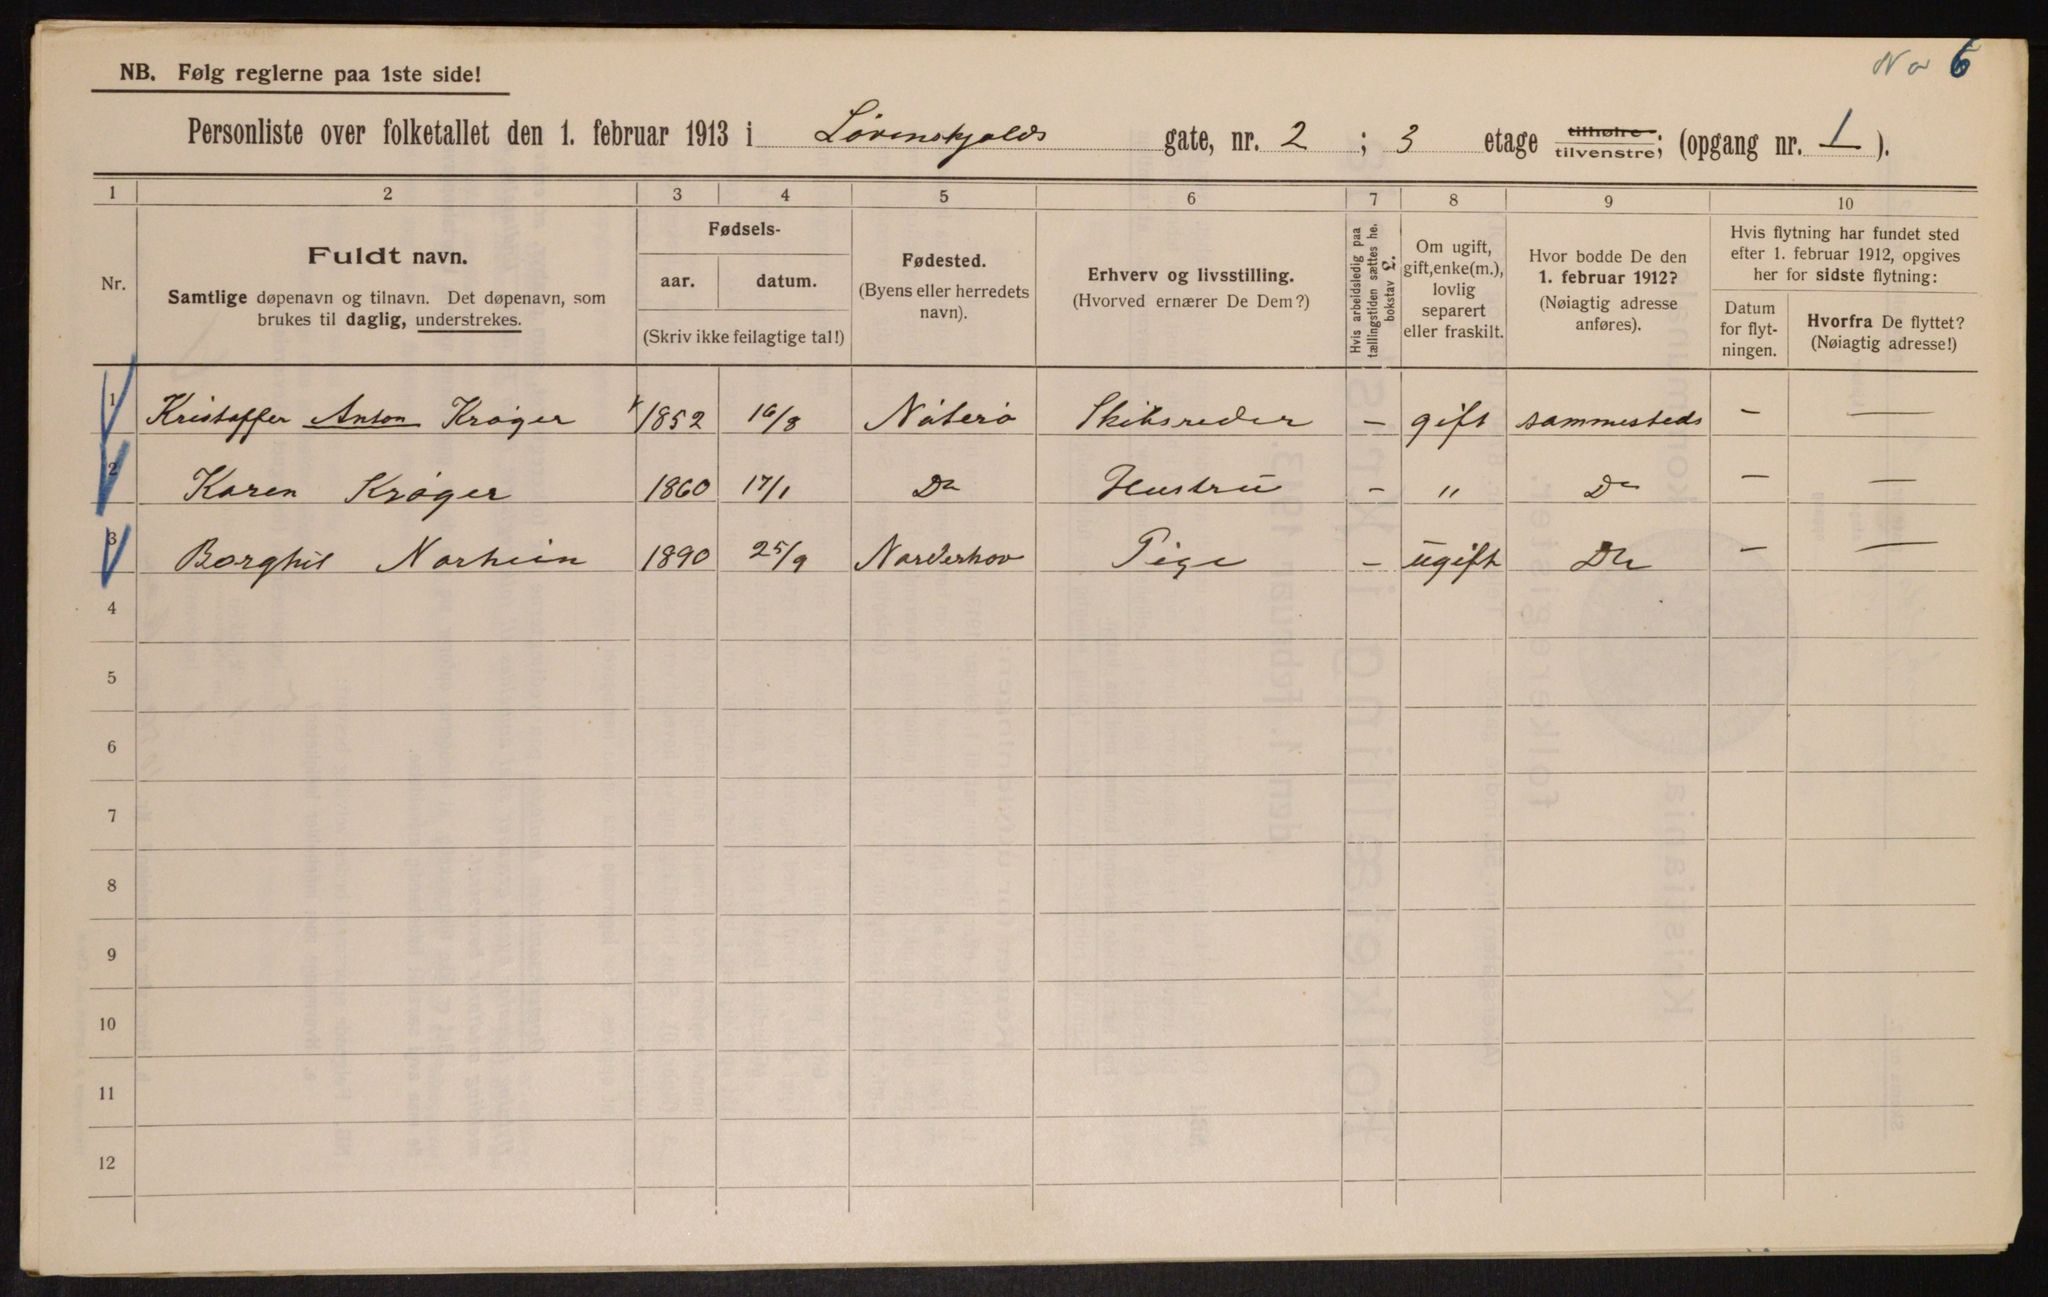 No 6
NB. Følg reglerne paa 1ste side!
Personliste over folketallet den 1. februar 1913 i Løvenskjolds gate, nr. 2 ; 3 etage tilhøire tilvenstre; (opgang nr. 1).
1 2 3 4 5 6 7 8 9 10
Nr.
Fuldt navn.
Samtlige døpenavn og tilnavn. Det døpenavn, som
brukes til daglig, understrekes.
Fødsels-
aar. datum.
(Skriv ikke feilagtige tal!)
Fødested.
(Byens eller herredets
navn).
Erhverv og livsstilling.
(Hvorved ernærer De Dem?)
Hvis arbeidsledig paa
tællingstiden sættes he.
bokstav L.
Om ugift,
gift, enke(m.),
lovlig
separert
eller fraskilt.
Hvor bodde De den
1. februar 1912?
(Nøiagtig adresse
anføres).
Hvis flytning har fundet sted
efter 1. februar 1912, opgives
her for sidste flytning:
Datum
for flyt-
ningen.
Hvorfra De flyttet?
(Nøiagtig adresse!)
1 Kristoffer Anton Krøger 1852 16/8 Nøterø Skibsreder – gift sammesteds – –
2 Karen Krøger 1860 17/1 Do Hustru – " Do – –
3 Borghil Norhein 1890 25/9 Norderhov Pige – ugift Do – –
4
5
6
7
8
9
10
11
12